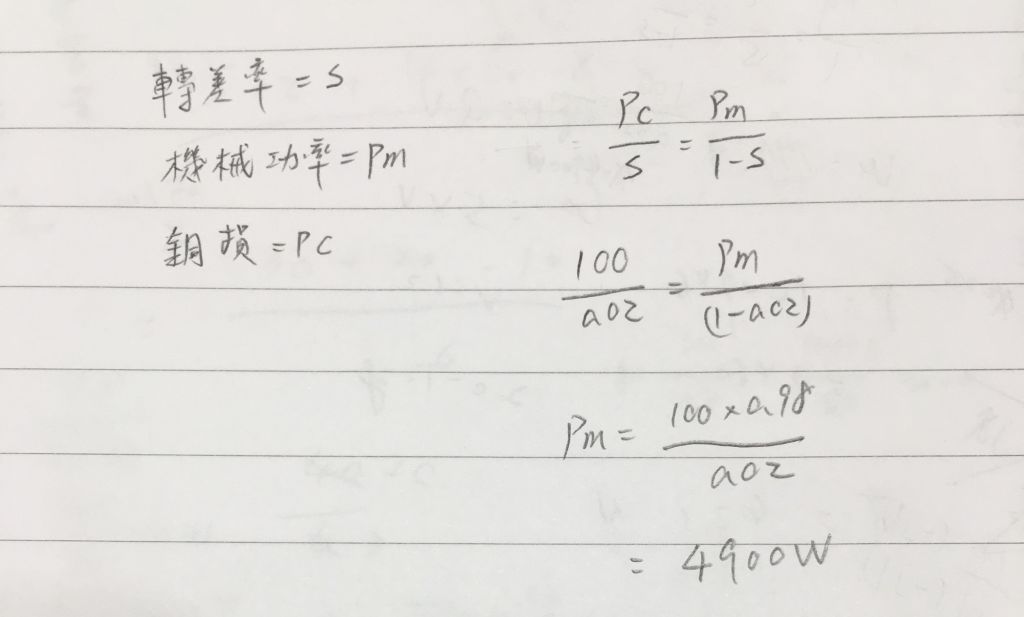 轉差率 = S
機械功率 = Pm
銅損 = PC
Pc/S = Pm/1-S
100/0.02 = Pm/(1-0.02)
Pm = 100×0.98/0.02
= 4900W